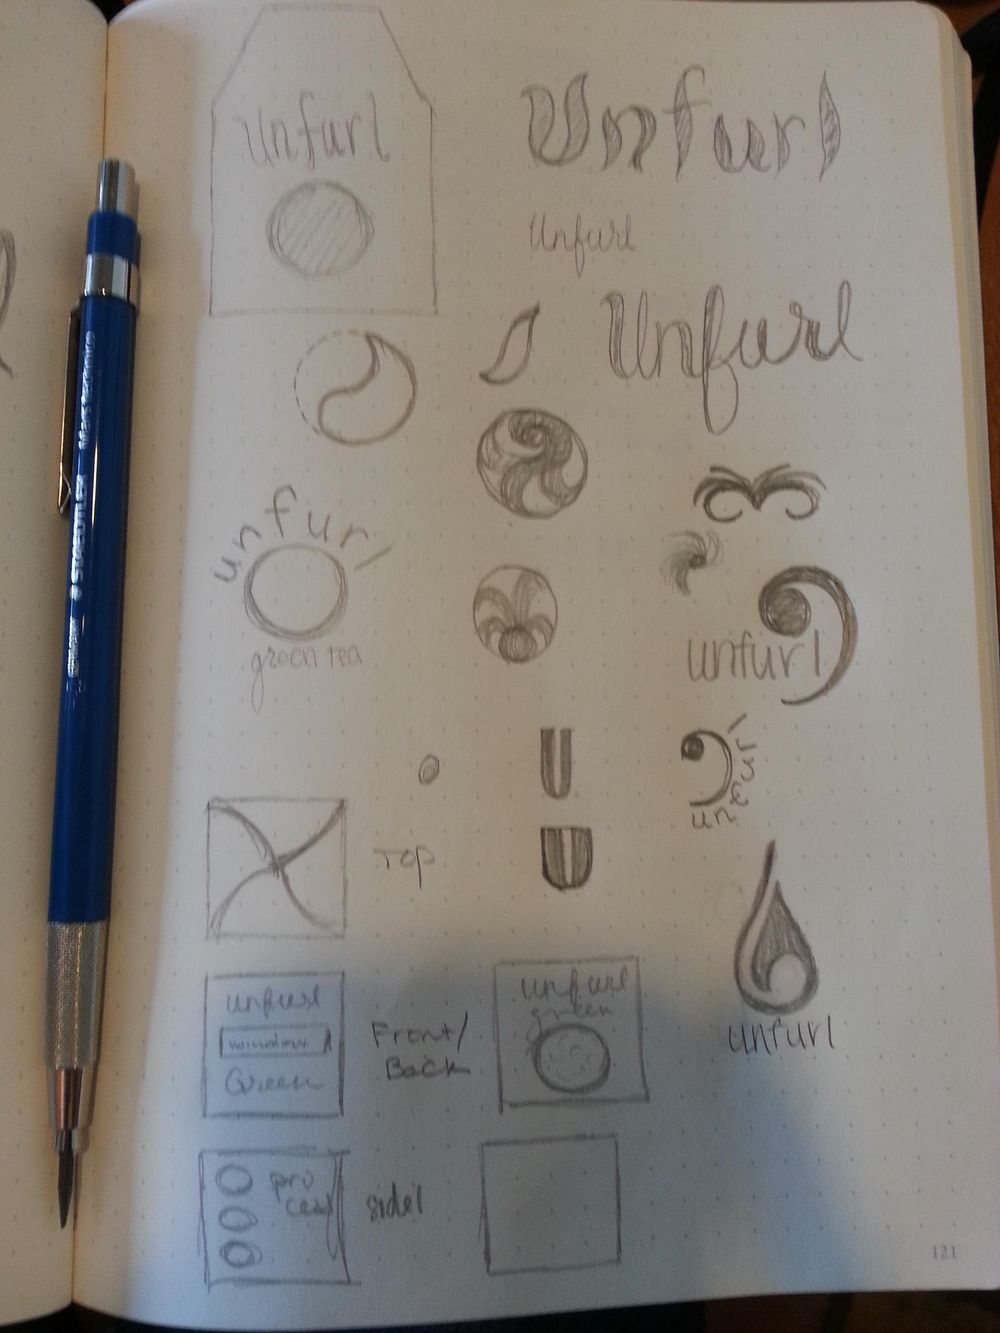 Unfurl
Unfurl
Unfurl
Unfurl
unfurl
green tea
unfurl
unfurl
Top
unfurl
window
Green
Front/
Back
unfurl
green
unfurl
pro
cess
side 1
121
STAEDTLER Mars technico